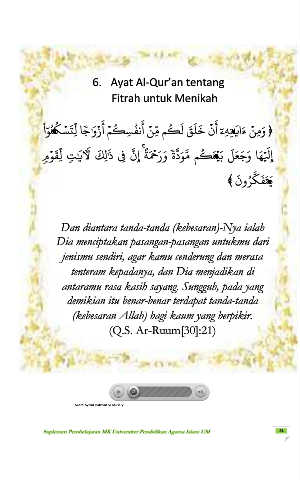 6. Ayat Al-Qur'an tentang
Fitrah untuk Menikah
﴿ وَمِنْ ءَايَـٰتِهِۦٓ أَنْ خَلَقَ لَكُم مِّنْ أَنفُسِكُمْ أَزْوَٰجًا لِّتَسْكُنُوٓا۟
إِلَيْهَا وَجَعَلَ بَيْنَكُم مَّوَدَّةً وَرَحْمَةً ۚ إِنَّ فِى ذَٰلِكَ لَـَٔايَـٰتٍ لِّقَوْمٍ
يَتَفَكَّرُونَ ﴾
Dan diantara tanda-tanda (kebesaran)-Nya ialah
Dia menciptakan pasangan-pasangan untukmu dari
jenismu sendiri, agar kamu cenderung dan merasa
tenteram kepadanya, dan Dia menjadikan di
antaramu rasa kasih sayang. Sungguh, pada yang
demikian itu benar-benar terdapat tanda-tanda
(kebesaran Allah) bagi kaum yang berpikir.
(Q.S. Ar-Ruum[30]:21)
Suplemen Pembelajaran MK Universiter Pendidikan Agama Islam UM